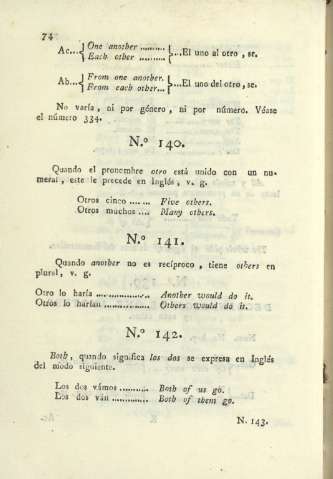 74
Ac...{ One another ..........
Each other ........... }...El uno al otro , se.
Ab...{ From one another.
From each other... }...El uno del otro , se.
No varía , ni por género , ni por número. Véase
el número 334.
N.º 140.
Quando el pronombre otro está unido con un nu-
meral , este le precede en Inglés , v. g.
Otros cinco ....... Five others.
Otros muchos .... Many others.
N.º 141.
Quando another no es recíproco , tiene others en
plural, v. g.
Otro lo haría .................. Another would do it.
Otros lo harían ............... Others would do it.
N.º 142.
Both , quando significa los dos se expresa en Inglés
del modo siguiente.
Los dos vámos .......... Both of us go.
Los dos ván ............. Both of them go.
N. 143.